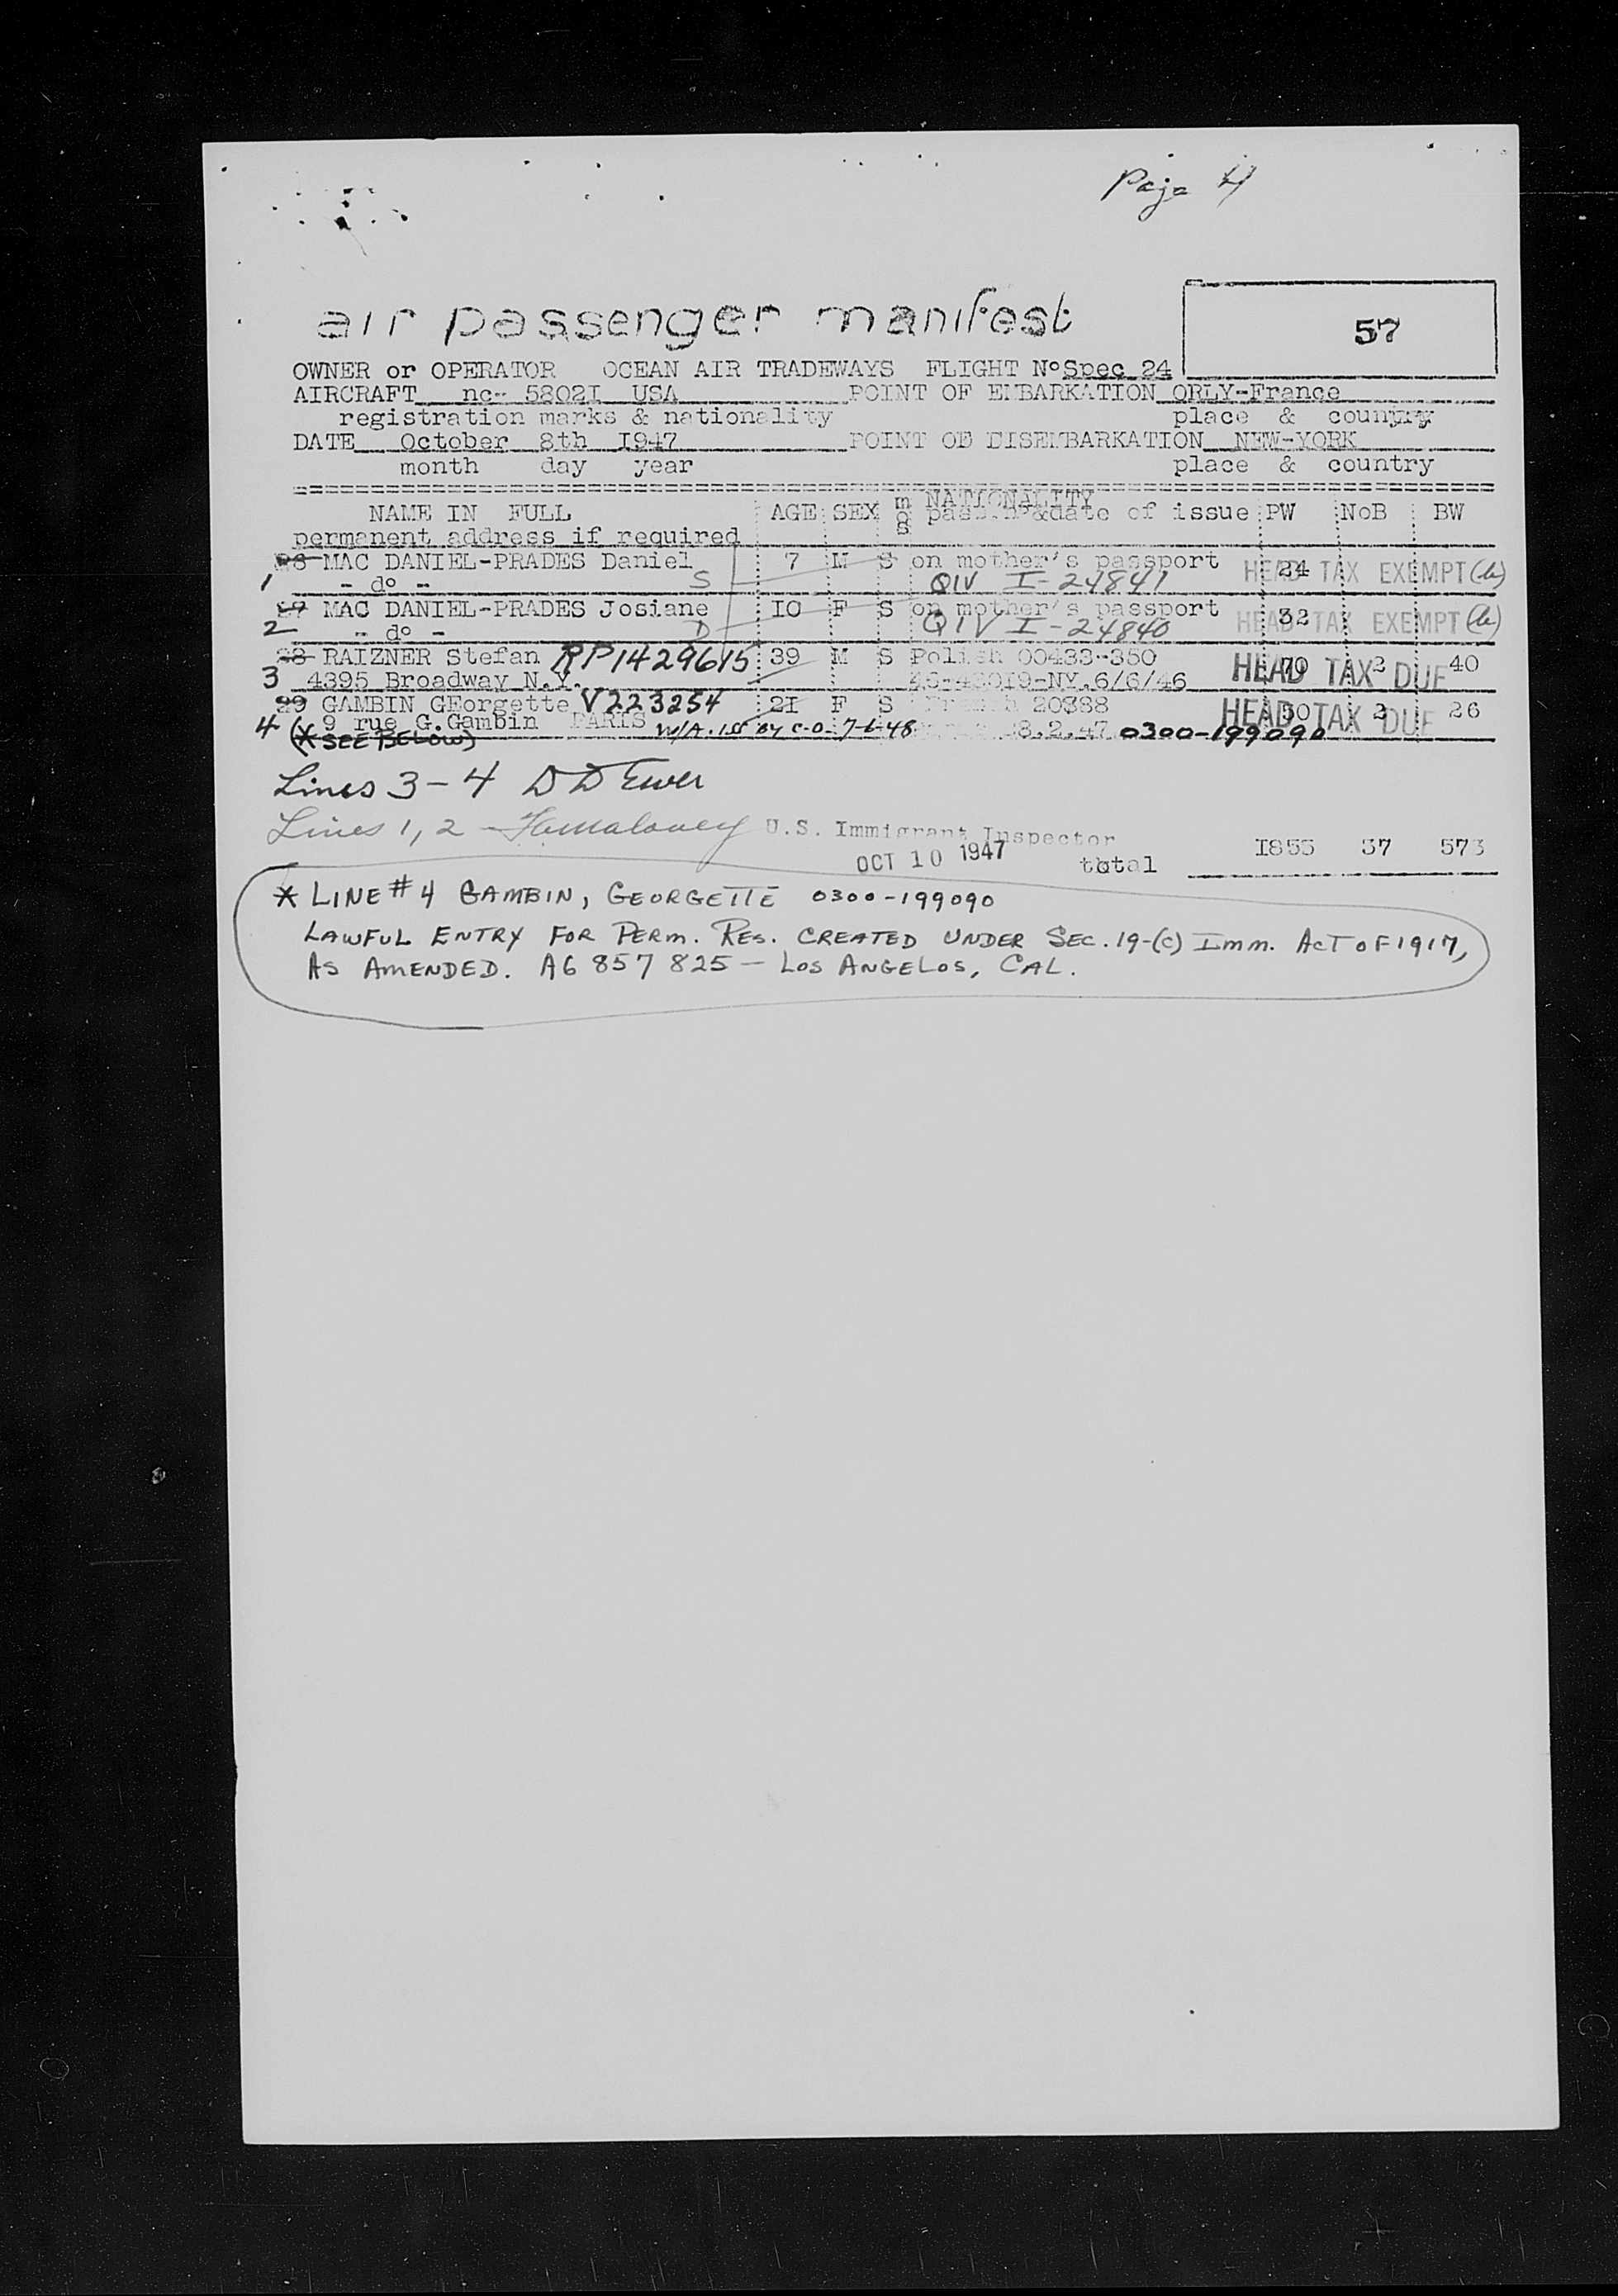 Page 4
air passenger manifest
57
OWNER or OPERATOR OCEAN AIR TRADEWAYS FLIGHT N°Spec 24
AIRCRAFT nc-- 5802I USA POINT OF EMBARKATION ORLY-France
registration marks & nationality place & country
DATE October 8th I947 POINT OD DISEMBARKATION NEW-YORK
month day year place & country
NAME IN FULL AGE SEX mos NATIONALITY pass.n°&date of issue PW NoB BW
permanent address if required
MAC DANIEL-PRADES Daniel 7 M S on mother's passport 24 HEAD TAX EXEMPT
1 - d° - S QIV I-24841
27 MAC DANIEL-PRADES Josiane IO F S on mother's passport 32 HEAD TAX EXEMPT
2 - d° - D QIV I-24840
28 RAIZNER Stefan RP1429615 39 M S Polish 00433-350 70 2 40 HEAD TAX DUE
3 4395 Broadway N.Y. -NY.6/6/46
29 GAMBIN GEorgette V223254 2I F S 20388 2 26 HEAD TAX DUE
4 9 rue G.Gambin PARIS W/A. ISS BY C-O- 7-6-48 8.2.47 0300-199090
(* SEE BELOW)
Lines 3-4 DD Ewer
Lines 1, 2 U.S. Immigrant Inspector
OCT 10 1947 total I855 37 573
* LINE # 4 GAMBIN, GEORGETTE 0300-199090
LAWFUL ENTRY FOR PERM. RES. CREATED UNDER SEC. 19-(C) IMM. ACT OF 1917,
AS AMENDED. A6 857 825 - LOS ANGELOS, CAL.